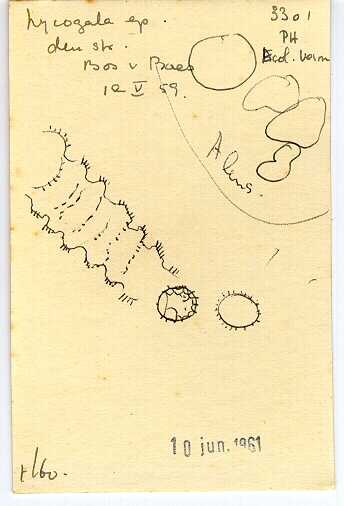 Lycogala ep.
den str.
Bos v Baes
12 V 59.
3301
PH
Ecol. Varn
Alens.
10 jun. 1961
x160.